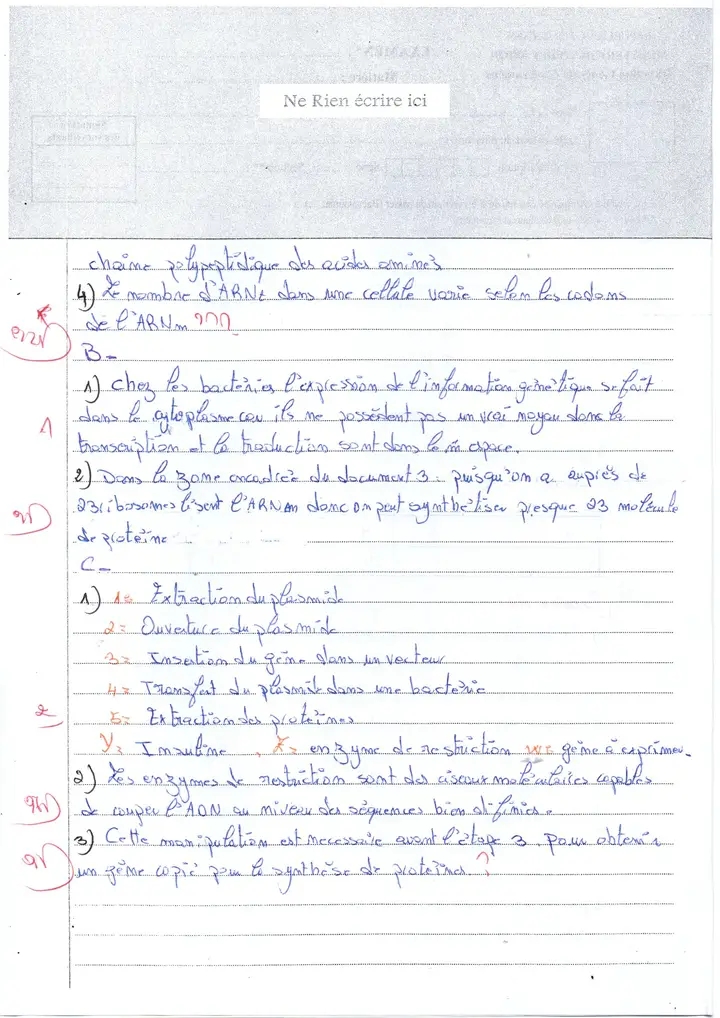 Ne Rien écrire ici
chaîne polypeptidique des acides aminés
4) Le nombre d'ARNt dans une cellule varie selon les codons
de l'ARNm ???
B-
1) chez les bactéries l'expression de l'information génétique se fait
dans le cytoplasme car ils ne possèdent pas un vrai noyau donc la
transcription et la traduction sont dans le m espace.
1
2) Dans la zone encadrée du document 3 : puisqu'on a auprès de
23 ribosomes lisent l'ARNm donc on peut synthétiser presque 23 molécule
de protéine
C-
1) 1= Extraction du plasmide
2= Ouverture du plasmide
3= Insertion du gène dans un vecteur
4= Transfert du plasmide dans une bactérie
5= Extraction des protéines
2
Y= Insuline , X= enzyme de restriction W= gène à exprimer.
2) Les enzymes de restriction sont des ciseaux moléculaires capables
de couper l'ADN au niveau des séquences bien définies.
3) Cette manipulation est necessaie avant l'étape 3. pour obtenir
un gène copié pour la synthèse de protéines. ?